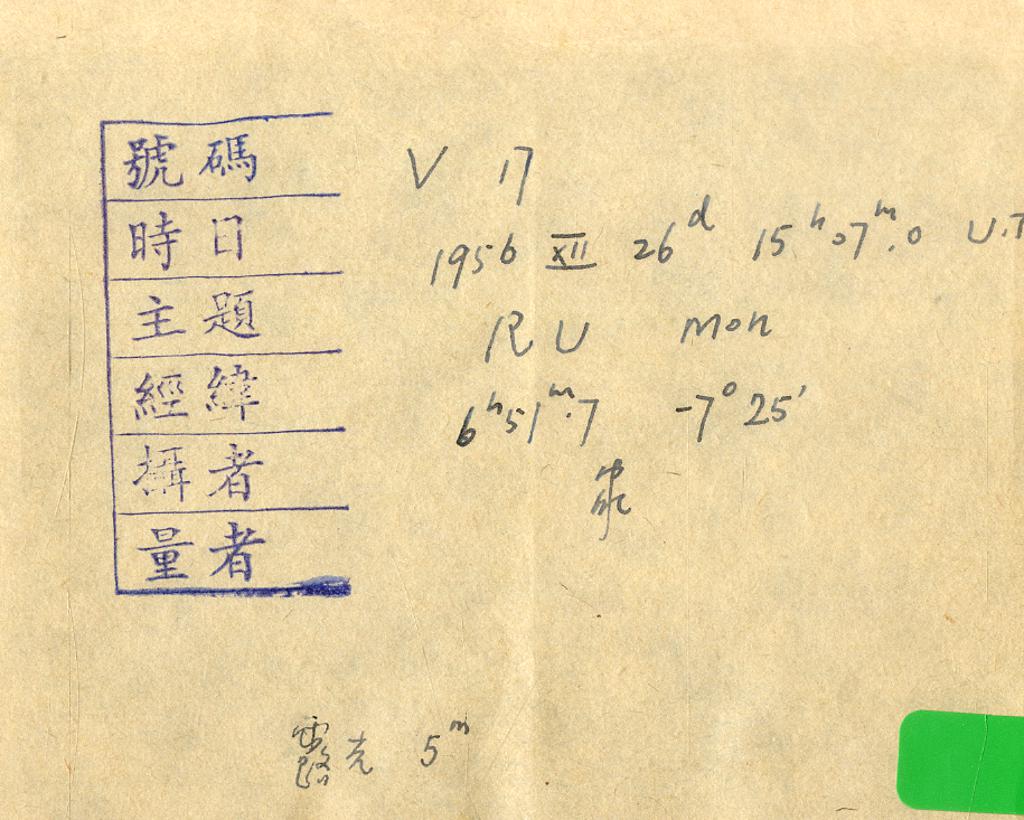 號碼 V 17
時日 1956 XII 26d 15h07m.0 U.T
主題 RU Mon
經緯 6h51m.7 -7°25'
攝者
量者
露光 5m